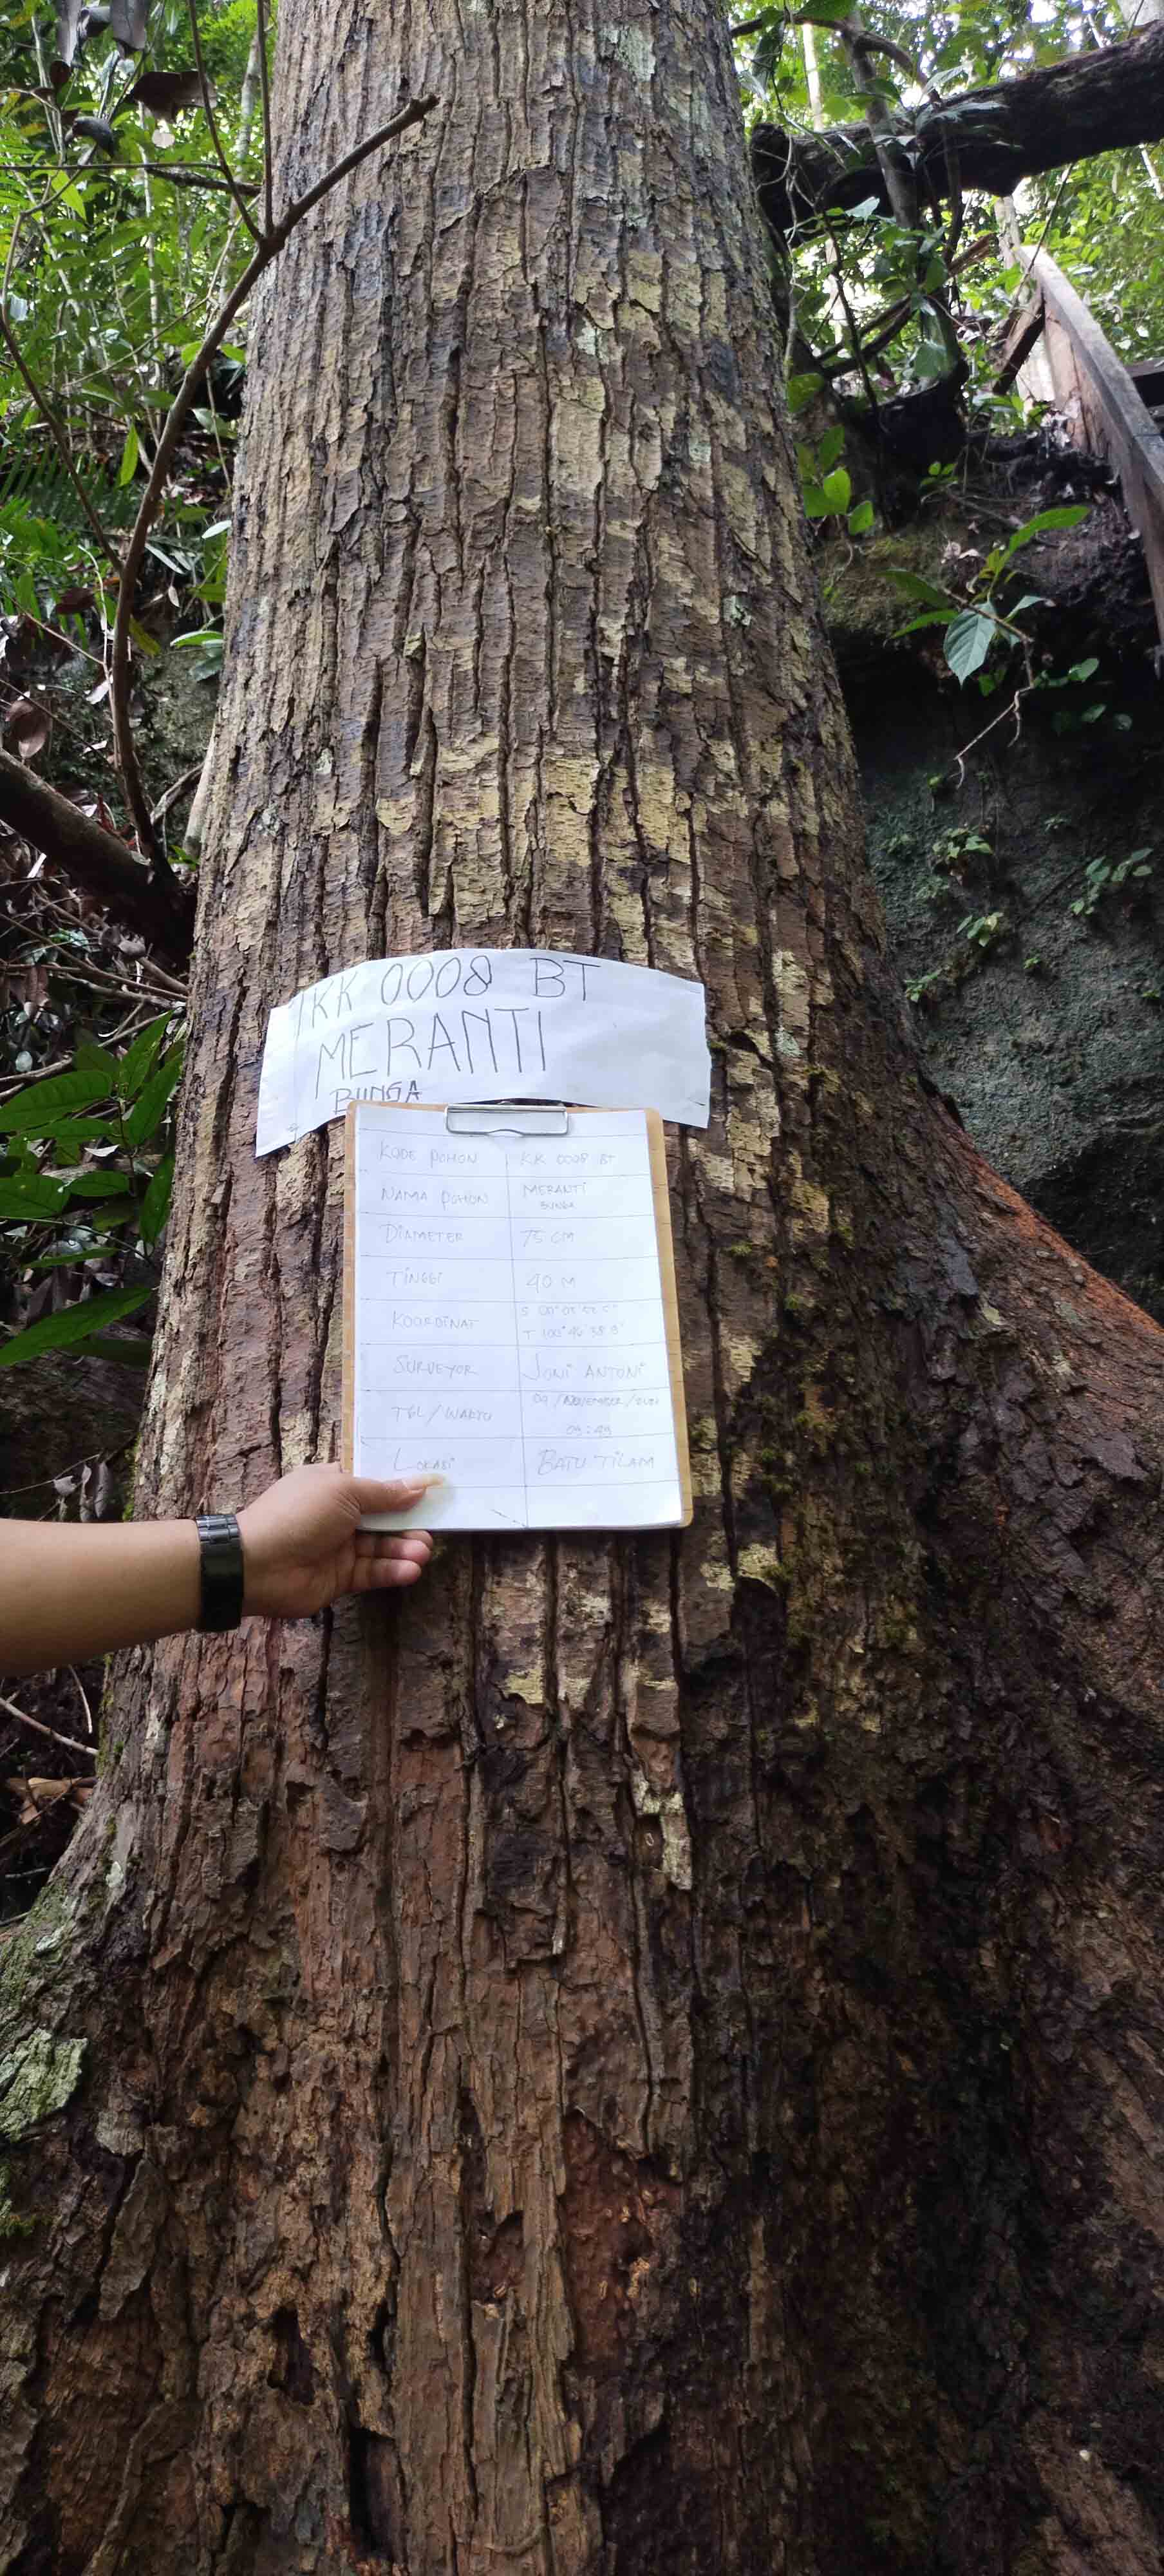 KK 0008 BT
MERANTI
BUNGA
KODE POHON KK 0008 BT
NAMA POHON MERANTI
BUNGA
DiAMETER 75 CM
TiNGGi 40 M
KOORDiNAT
SURVEYOR JONi ANTONi
TGL/WAKTU 09/NOVEMBER/
09:49
LOKASi BATU TiLAM